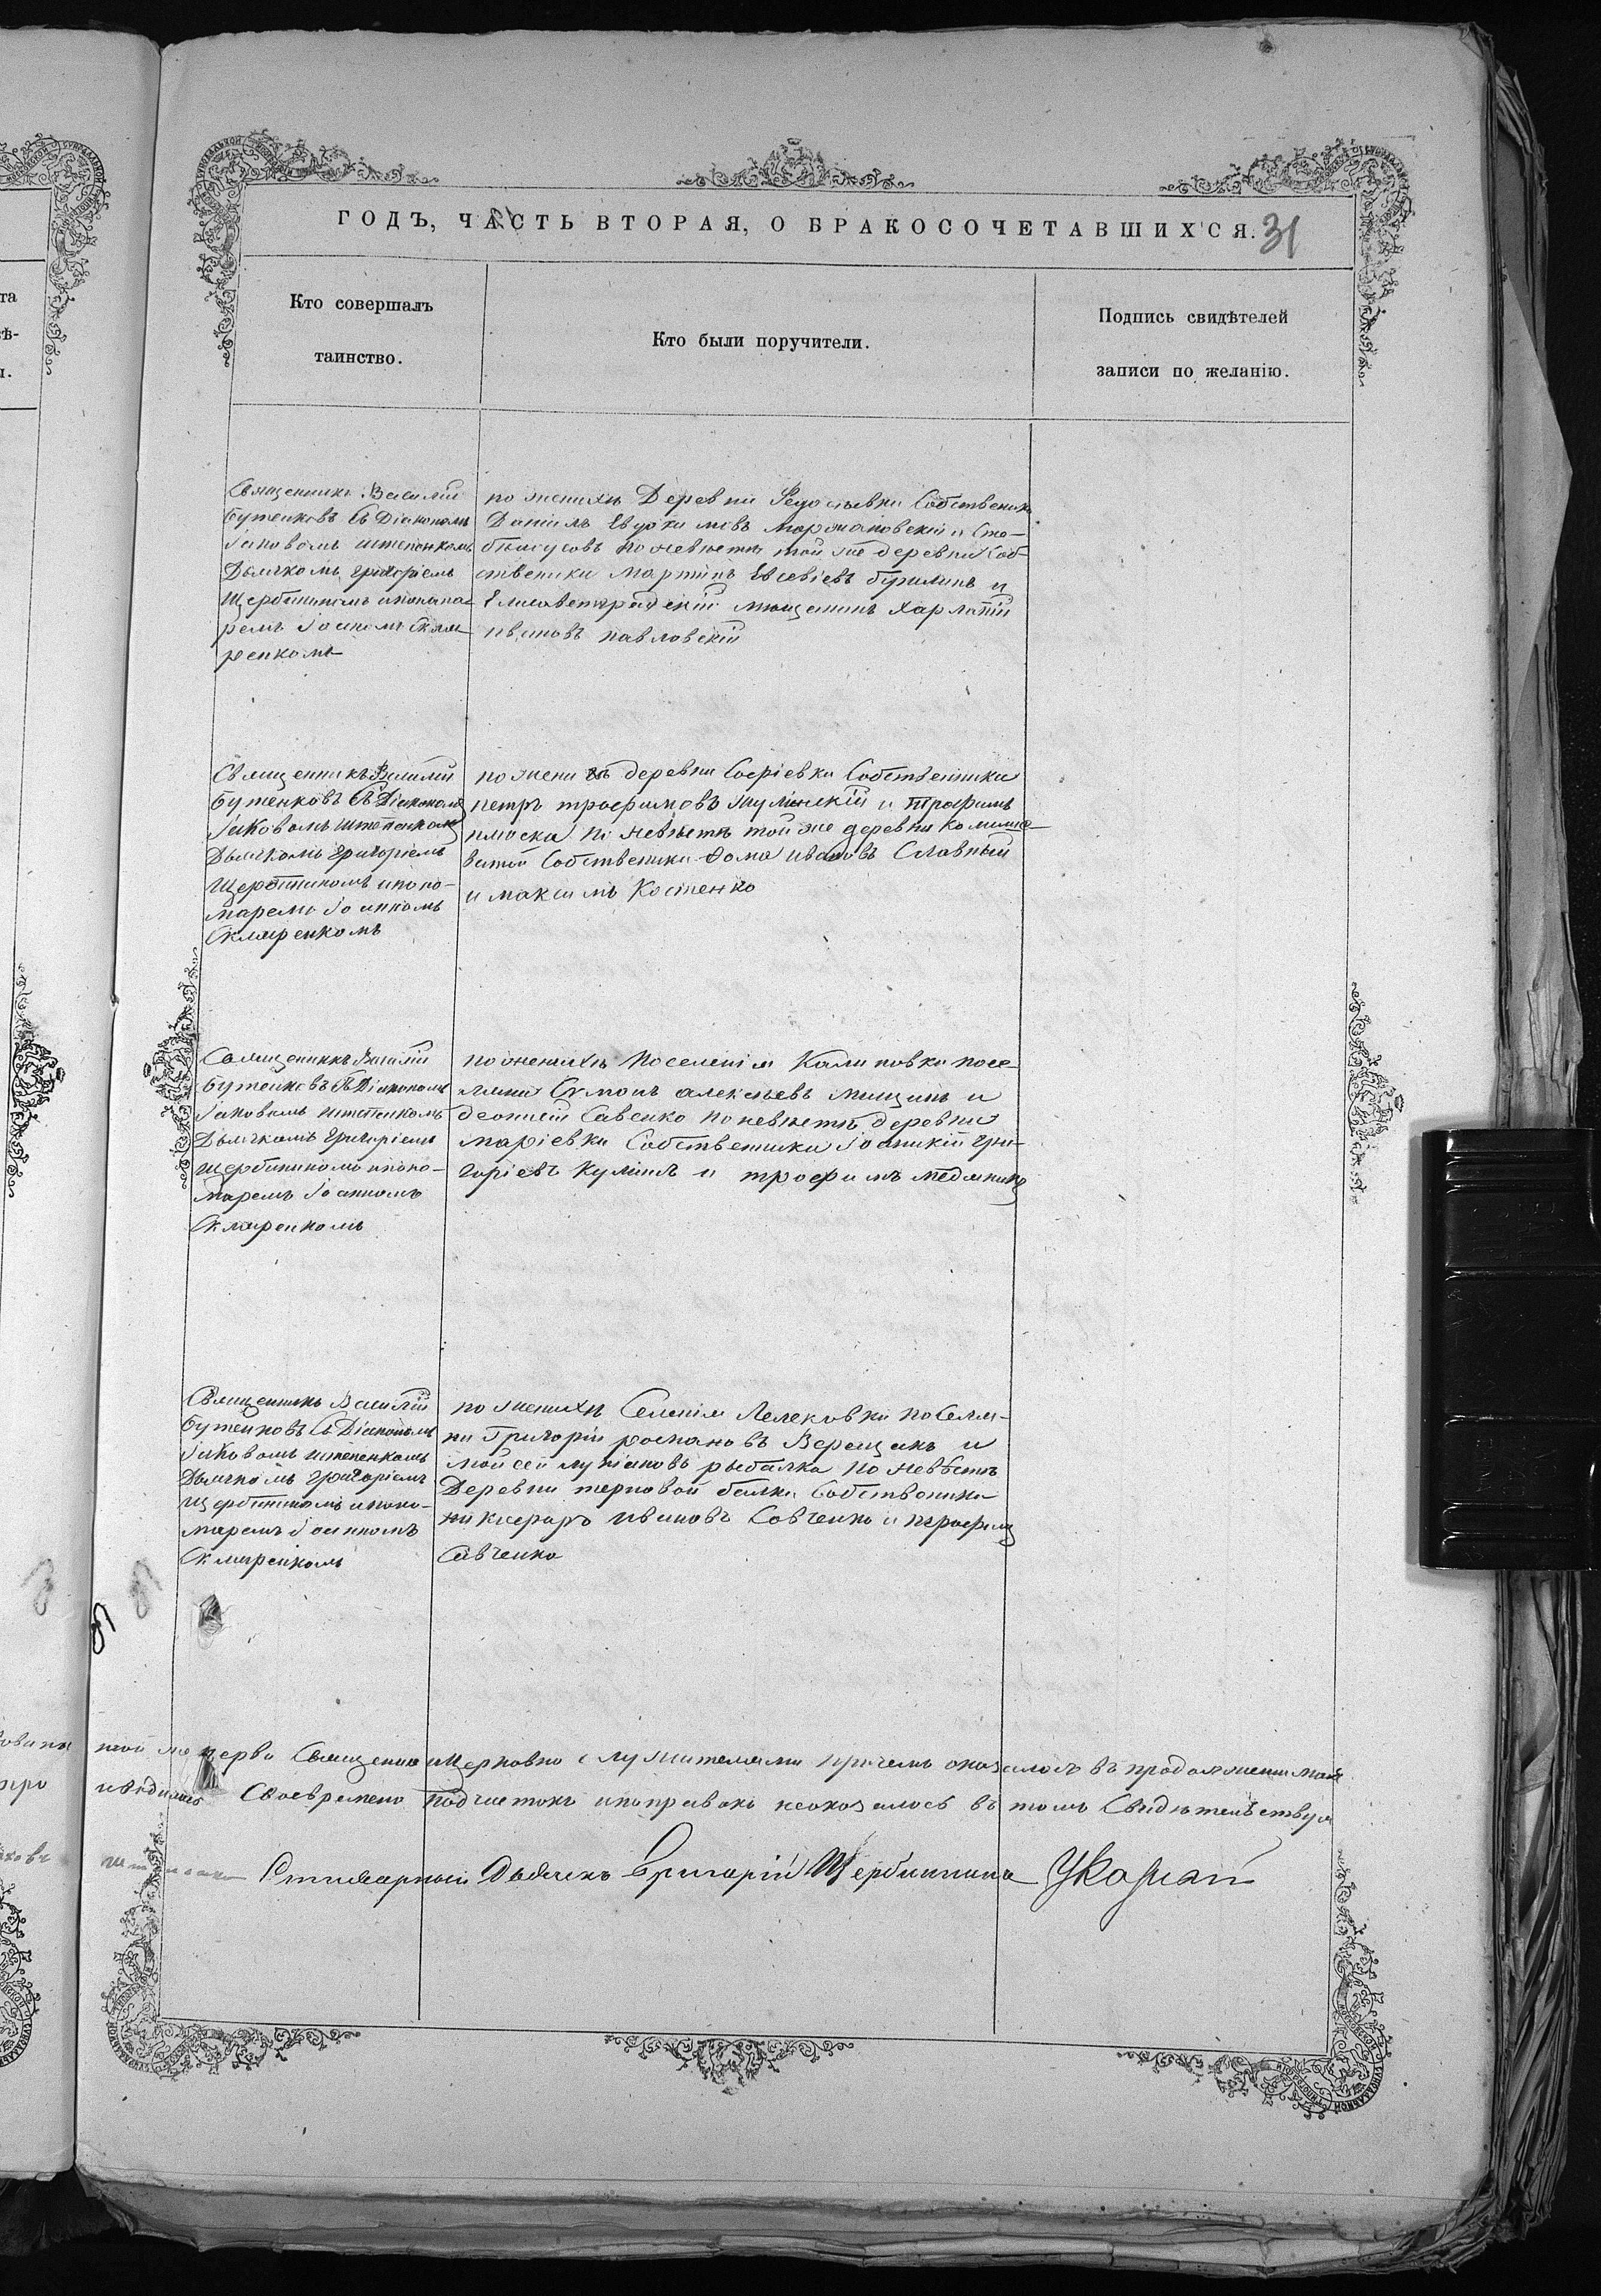 ГОДЪ, ЧАСТЬ ВТОРАЯ, О БРАКОСОЧЕТАВШИХСЯ. 31
Кто совершалъ
таинство.
Кто были поручители.
Подпись свидѣтелей
записи по желанію.
Священникъ Василий
Бутенковъ съ Діакономъ
Іаковомъ Штепенкомъ
Дьячкомъ Григоріемъ
Щербининомъ и понама-
ремъ Іоаномъ Скля-
ренкомъ
по женихѣ Деревни Собственики
Даніилъ Евдокимовъ Моржановскій и Сте-
по невѣстѣ той же деревни Соб-
ственики Мартинъ Евсевіевъ Бурлинъ и
Елисаветградскій мещанинъ Харлапій
Ивановъ Павловскій
Священникъ Василий
Бутенковъ съ Діакономъ
Іаковомъ Штепенкомъ
Дьячкомъ Григоріемъ
Щербининомъ и поно-
маремъ Іоанномъ
Скляренкомъ
по жени хѣ деревни Софіевки Собственники
Петръ Трофимовъ и Трофимъ
Плоска по невѣстѣ той же деревни Комыше-
ватой Собственики Фома Ивановъ Славный
и Максимъ Костенко
Священникъ Василий
Бутенковъ съ Діакономъ
Іаковомъ Штепенкомъ
Дьячкомъ Григоріемъ
Щербининомъ и поно-
маремъ Іоанномъ
Скляренкомъ
по женихѣ Поселенія Калиновки посе-
ляни Сумонъ Алексѣевъ Мищинъ и
Савенко по невѣстѣ деревни
Маріевки Собственники Іоаникій Гри-
горіевъ Кулішъ и Трофимъ Медяникъ
Священникъ Василій
Бутенковъ съ Діакономъ
Іаковомъ Штепенкомъ
Дьячкомъ Григоріемъ
Щербининомъ и поно-
маремъ Іоанномъ
Скляренкомъ
по женихѣ Селенія Лелековки поселя-
ни Григорій Романовъ Верещакъ и
Мойсей Лукіановъ Рыбалка по невѣстѣ
Деревни терновой балки Собственики
Никифоръ Ивановъ Савченко и Трофимъ
Савченко
той же церкви Священно и Церковно служителями причемъ оказалось въ продолженіи мая
Своевремено подчистокъ и поправокъ неоказалось въ томъ Свидѣтельствуя
Дьячекъ Григорій Щербининъ